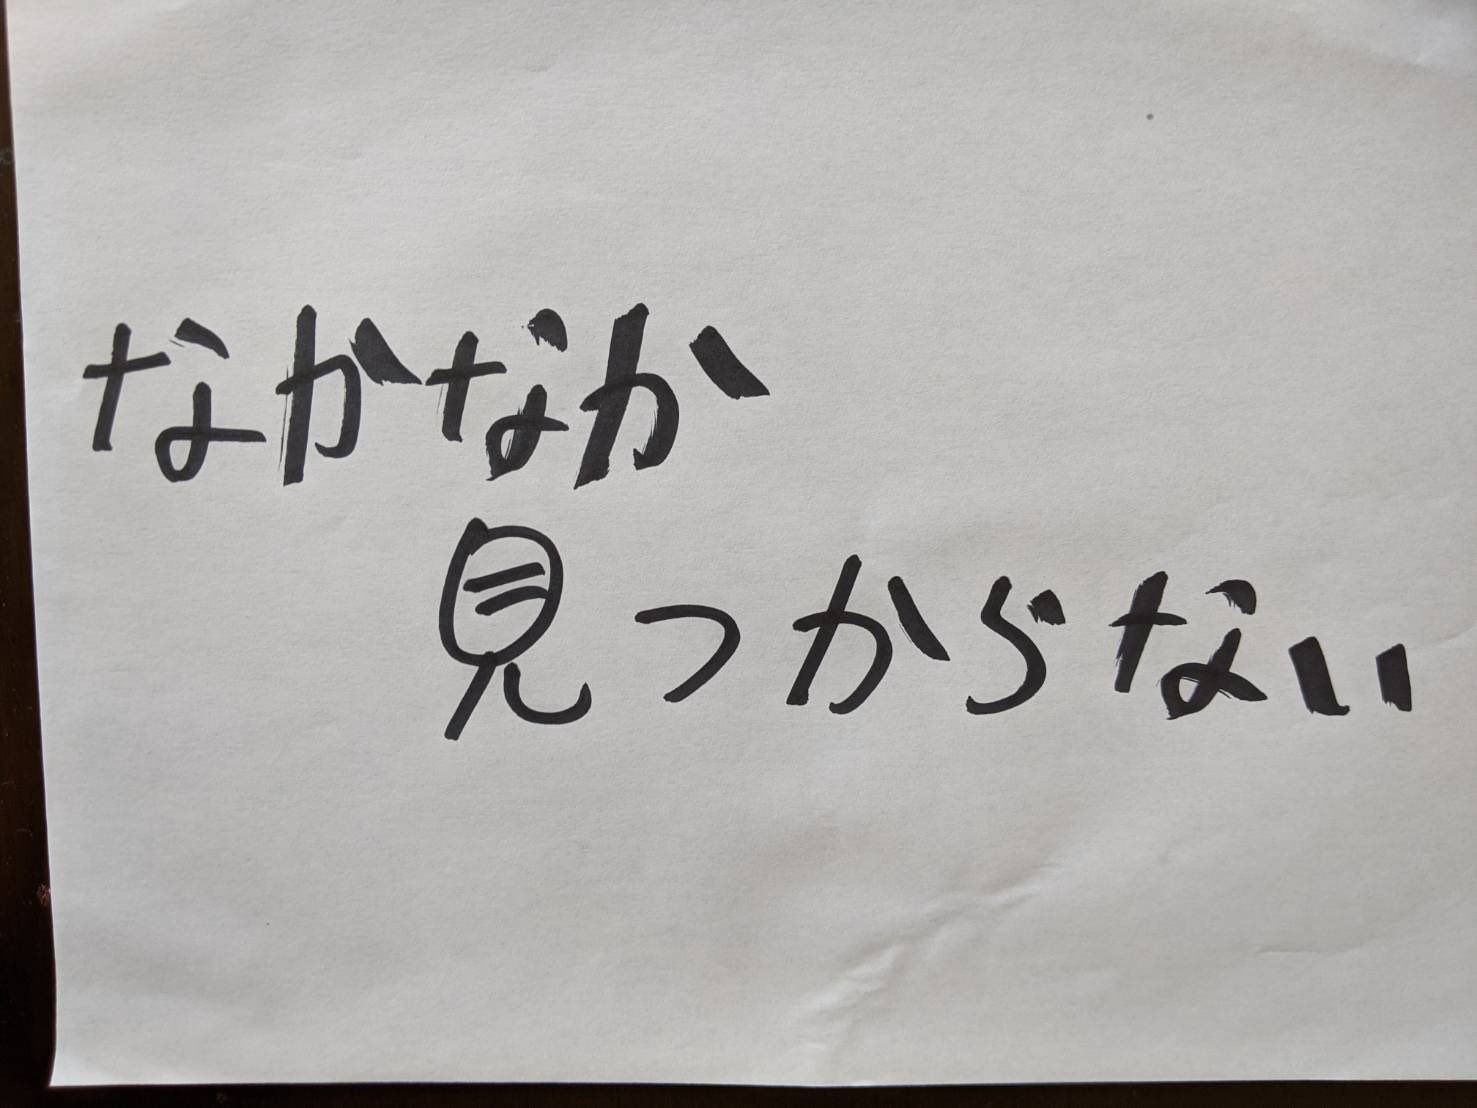 なかなか
見つからない